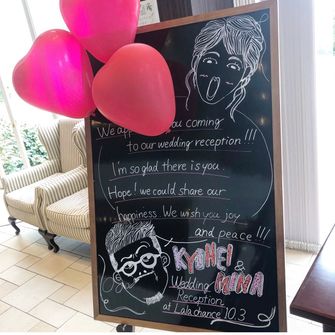 We app you coming
to our wedding reception!!!
I'm so glad there is you.
Hope! we could share our
happiness. We wish you joy
and peace!!!
KYOHEI &
MINA
Wedding
Reception
at Lalachance 10.3